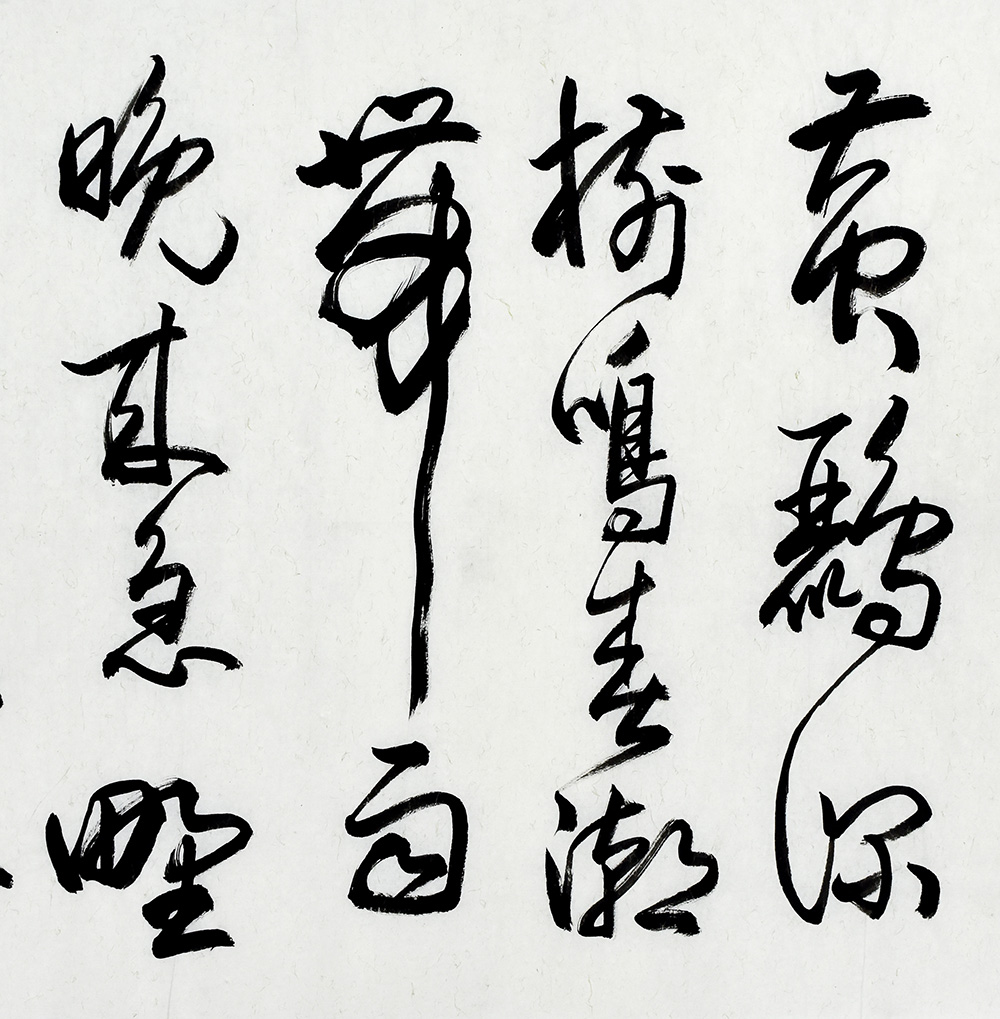 黃鸝深
樹鳴春潮
帶雨
晚來急野